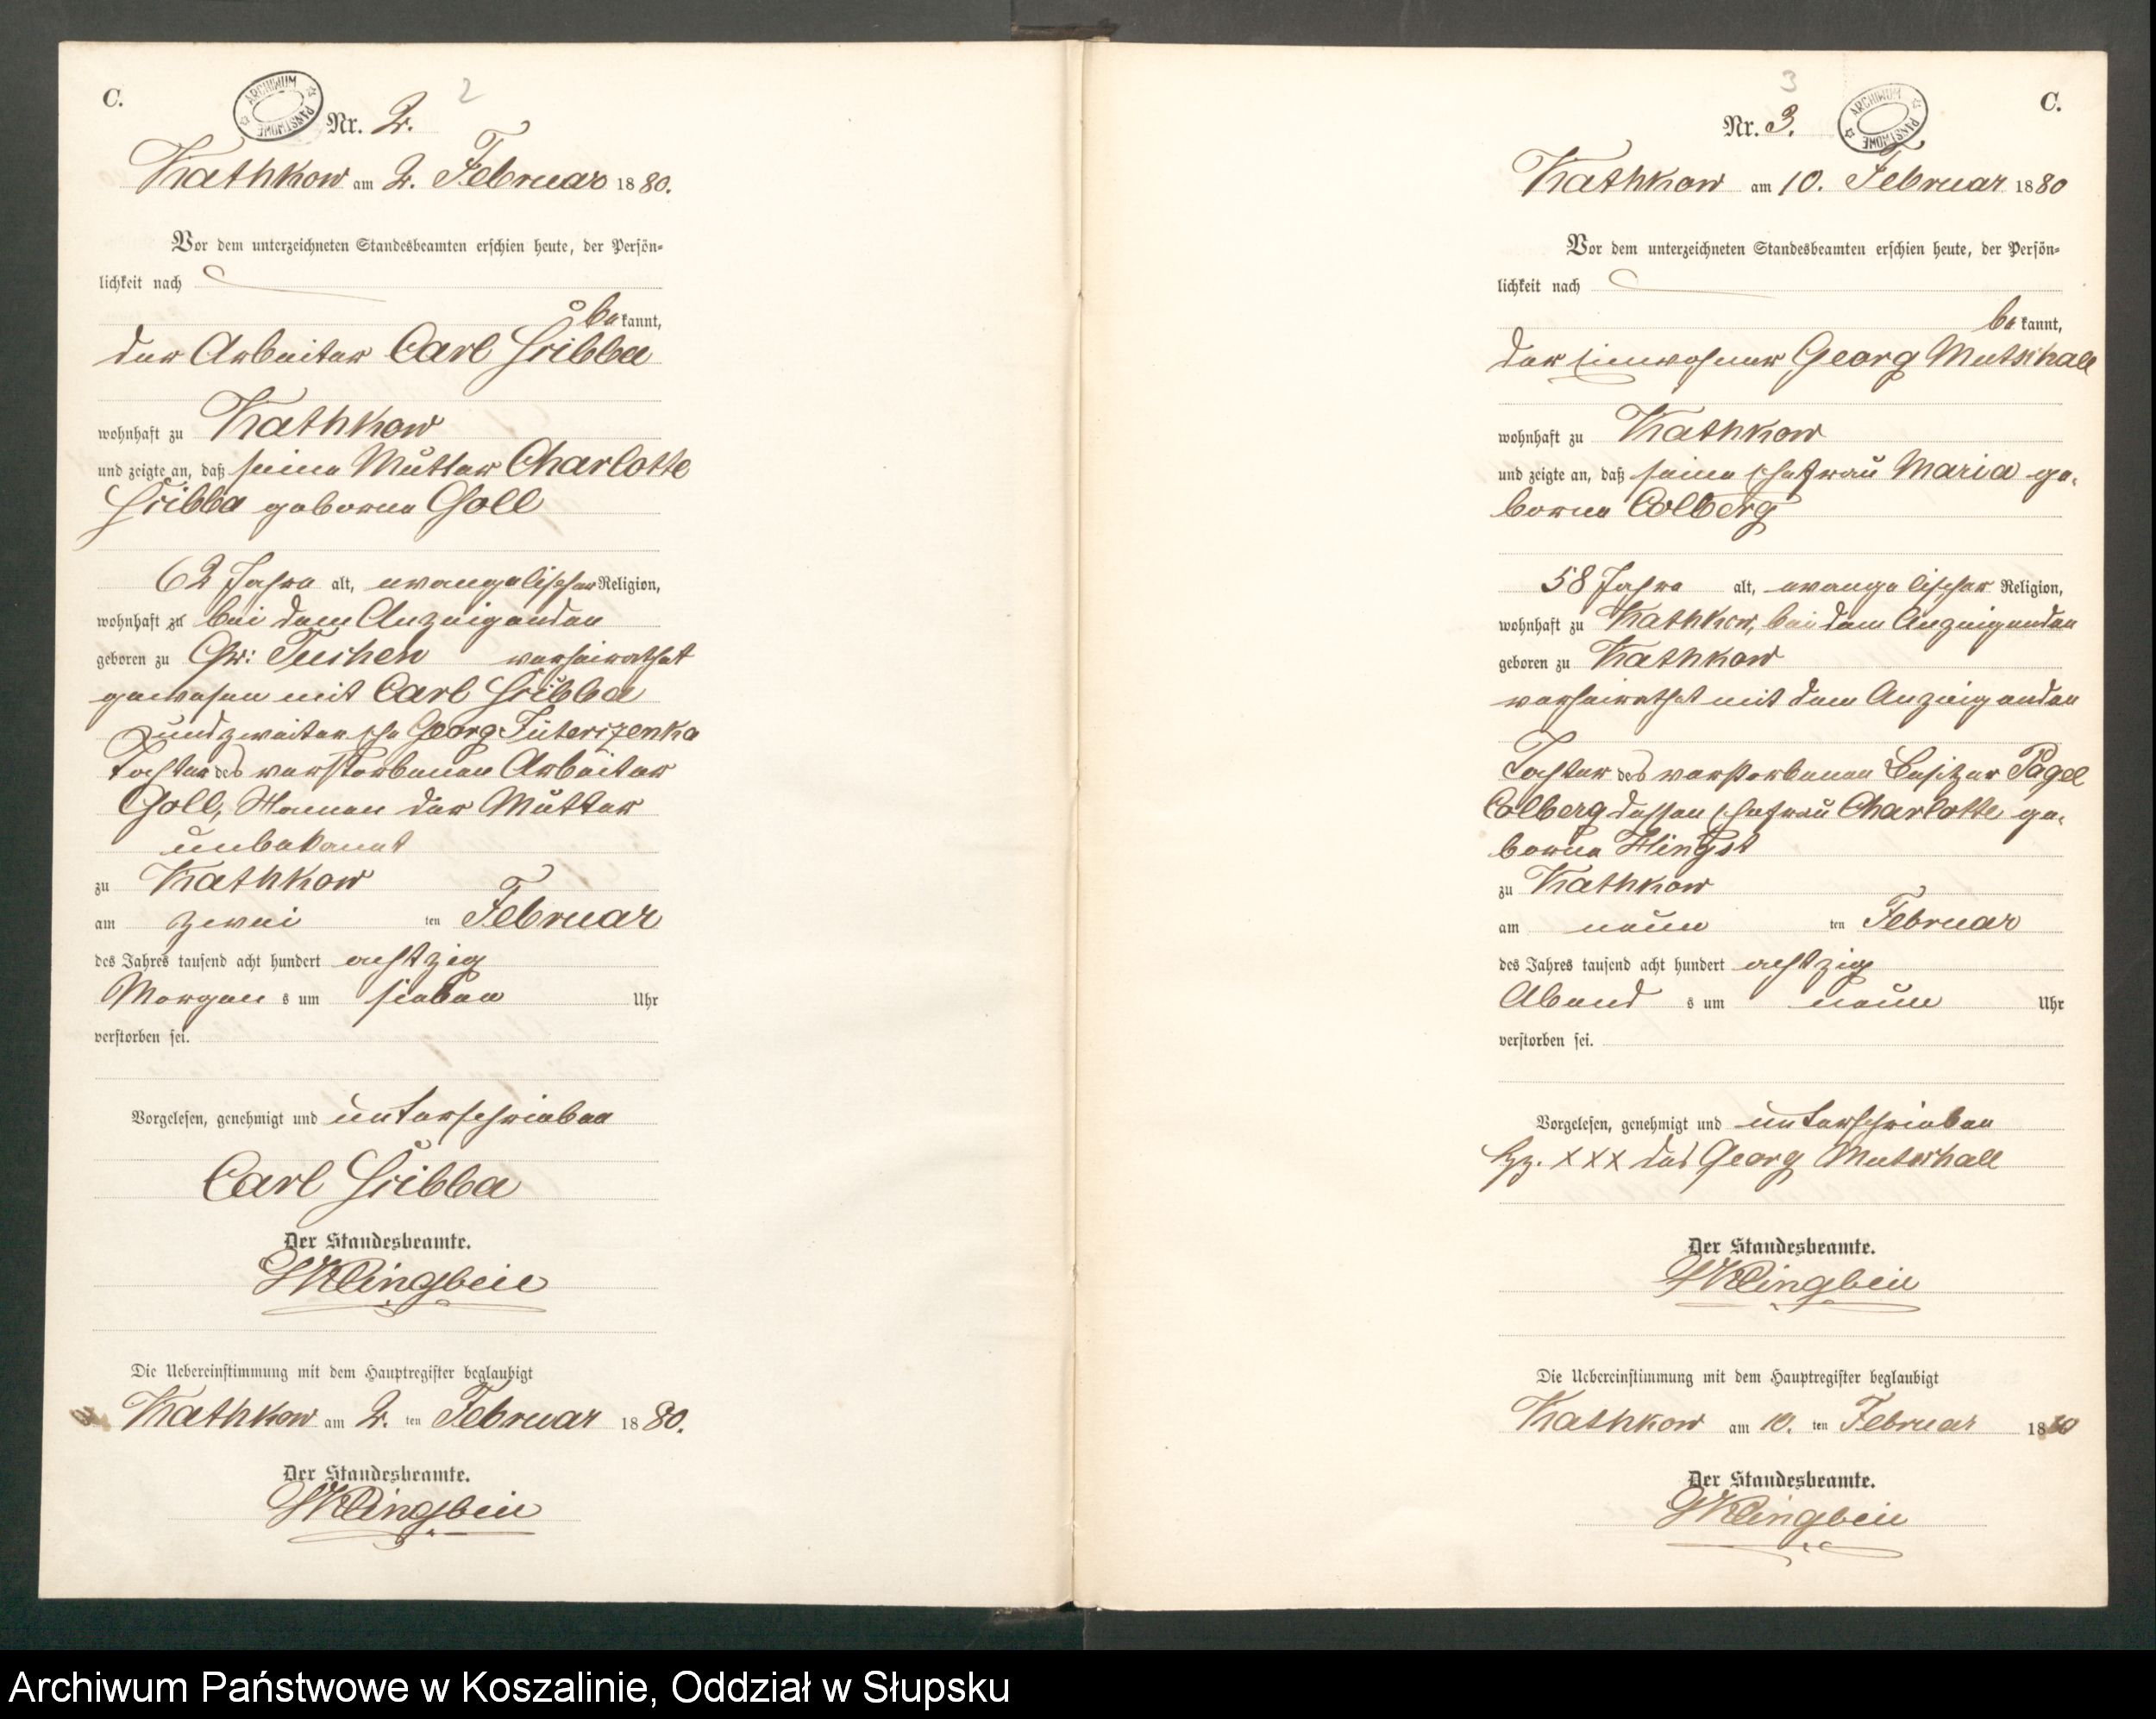 C.
ARCHIWUM PAŃSTWOWE
2
Nr. 2.
Kathkow am 2. Februar 1880.
Vor dem unterzeichneten Standesbeamten erschien heute, der Persön-
lichkeit nach
bekannt,
der Arbeiter Carl Gribba
wohnhaft zu Kathkow
und zeigte an, daß seine Mutter Charlotte
Gribba geborne Goll
62 Jahre alt, evangelischer Religion,
wohnhaft zu bei dem Anzeigenden
geboren zu Gr: Tuchen verheirathet
gewesen mit Carl Gribba
und zweiter Ehe Georg
Tochter des verstorbenen Arbeiter
Goll, Namen der Mutter
unbekannt
zu Kathkow
am zwei ten Februar
des Jahres tausend acht hundert achtzig
Morgens um sieben Uhr
verstorben sei.
Vorgelesen, genehmigt und unterschrieben
Carl Gribba
Der Standesbeamte.
Klingbeil
Die Uebereinstimmung mit dem Hauptregister beglaubigt
Kathkow am 2. ten Februar 1880.
Der Standesbeamte.
Klingbeil
3
C.
ARCHIWUM PAŃSTWOWE
Nr. 3.
Kathkow am 10. Februar 1880
Vor dem unterzeichneten Standesbeamten erschien heute, der Persön-
lichkeit nach
bekannt,
der Einwohner Georg Mutschall
wohnhaft zu Kathkow
und zeigte an, daß seine Ehefrau Maria ge-
borne Colberg
58 Jahre alt, evangelischer Religion,
wohnhaft zu Kathkow, bei dem Anzeigenden
geboren zu Kathkow
verheirathet mit dem Anzeigenden
Tochter des verstorbenen Besitzer Pagel
Colberg dessen Ehefrau Charlotte ge-
borne Hingst
zu Kathkow
am neun ten Februar
des Jahres tausend acht hundert achtzig
Abends um neun Uhr
verstorben sei.
Vorgelesen, genehmigt und unterschrieben
Hz. XXX des Georg Mutschall
Der Standesbeamte.
Klingbeil
Die Uebereinstimmung mit dem Hauptregister beglaubigt
Kathkow am 10. ten Februar 1880
Der Standesbeamte.
Klingbeil
Archiwum Państwowe w Koszalinie, Oddział w Słupsku